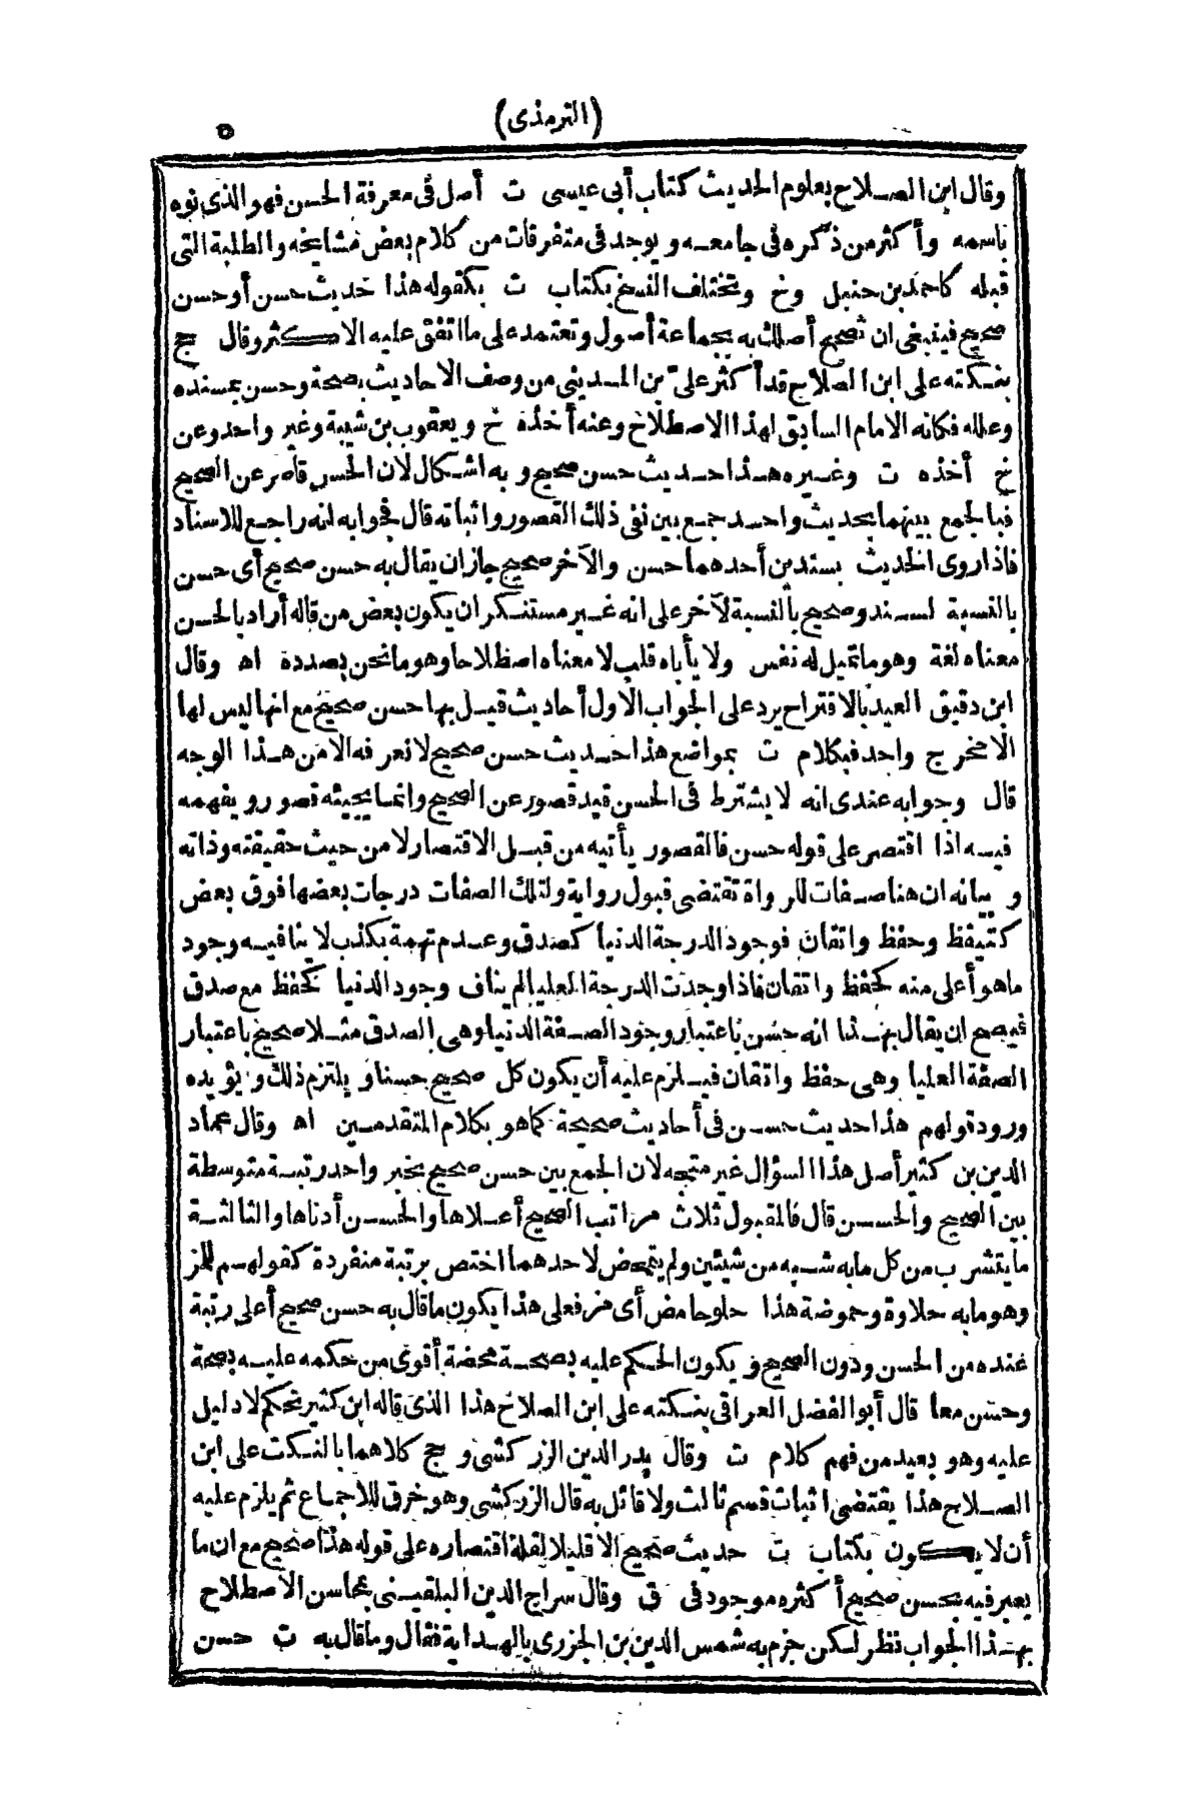 (الترمذى) ٥
وقال ابن الصلاح بعلوم الحديث كتاب أبى عيسى ت أصل فى معرفة الحسن فهو الذى نوه
باسمه وأكثر من ذكره فى جامعه ويوجد فى متفرقات من كلام بعض مشايخه والطلبة التى
قبله كاحمد بن حنبل وخ وتختلف النسخ بكتاب ت بكقوله هذا حديث حسن أو حسن
صحيح فينبغى ان تصحح أصلك به بجماعة أصول وتعتمد على ما اتفق عليه الاكثر وقال حج
بنكته على ابن الصلاح قد أكثر علىّ بن المدينى من وصف الاحاديث بصحة وحسن بمسنده
وعلله فكانه الامام السابق لهذا الاصطلاح وعنه أخذه خ ويعقوب بن شيبة وغير واحد وعن
خ أخذه ت وغيره هذا حديث حسن صحيح وبه اشكال لان الحسن قاصر عن الصحيح
فبالجمع بينهما بحديث واحد جمع بين نفى ذلك القصور واثباته قال فجوابه انه راجع للاسناد
فاذا روى الحديث بسندين أحدهما حسن والآخر صحيح جاز ان يقال به حسن صحيح أى حسن
بالنسبة لسند وصحيح بالنسبة لآخر على انه غير مستنكر ان يكون بعض من قاله أراد بالحسن
معناه لغة وهو ما تميل له نفس ولا يأباه قلب لا معناه اصطلاحا وهو ما نحن بصدده اه وقال
ابن دقيق العيد بالاقتراح يرد على الجواب الاول أحاديث قيل بها حسن صحيح مع انها ليس لها
الا مخرج واحد فبكلام ت بمواضع هذا حديث حسن صحيح لا نعرفه الا من هذا الوجه
قال وجوابه عندى انه لا يشترط فى الحسن قيد قصور عن الصحيح وانما يجيئه قصور ويفهمه
فيه اذا اقتصر على قوله حسن فالقصور يأتيه من قبل الاقتصار لا من حيث حقيقته وذاته
وبيانه ان هنا صفات للرواة تقتضى قبول رواية ولتلك الصفات درجات بعضها فوق بعض
كتيقظ وحفظ واتقان فوجود الدرجة الدنيا كصدق وعدم تهمة بكذب لا ينافيه وجود
ما هو أعلى منه كحفظ واتقان فاذا وجدت الدرجة العليا لم يناف وجود الدنيا كحفظ مع صدق
فيصح ان يقال بهذا انه حسن باعتبار وجود الصفة الدنيا وهى الصدق مثلا صحيح باعتبار
الصفة العليا وهى حفظ واتقان فيلزم عليه أن يكون كل صحيح حسنا ويلتزم ذلك ويؤيده
ورود قولهم هذا حديث حسن فى أحاديث صحيحة كما هو بكلام المتقدمين اه وقال عماد
الدين بن كثير أصل هذا السؤال غير متجه لان الجمع بين حسن صحيح بخبر واحد رتبة متوسطة
بين الصحيح والحسن قال فالمقبول ثلاث مراتب الصحيح أعلاها والحسن أدناها والثالثة
ما يتشرب من كل ما به شبه من شيئين ولم يتمحض لاحدهما اختص برتبة منفردة كقولهم للمز
وهو ما به حلاوة وحموضة هذا حلو حامض أى مز فعلى هذا يكون ما قال به حسن صحيح أعلى رتبة
عنده من الحسن ودون الصحيح ويكون الحكم عليه بصحة محضة أقوى من حكمه عليه بصحة
وحسن معا قال أبو الفضل العراقى بنكته على ابن الصلاح هذا الذى قاله ابن كثير تحكم لا دليل
عليه وهو بعيد من فهم كلام ت وقال بدر الدين الزركشى و حج كلاهما بالنكت على ابن
الصلاح هذا يقتضى اثبات قسم ثالث ولا قائل به قال الزركشى وهو خرق للاجماع ثم يلزم عليه
أن لا يكون بكتاب ت حديث صحيح الا قليلا لقلة اقتصاره على قوله هذا صحيح مع ان ما
يعبر فيه بحسن صحيح أكثره موجود فى ق وقال سراج الدين البلقينى بمحاسن الاصطلاح
بهذا الجواب نظر لكن جزم به شمس الدين بن الجزرى بالهداية فقال وما قال به ت حسن